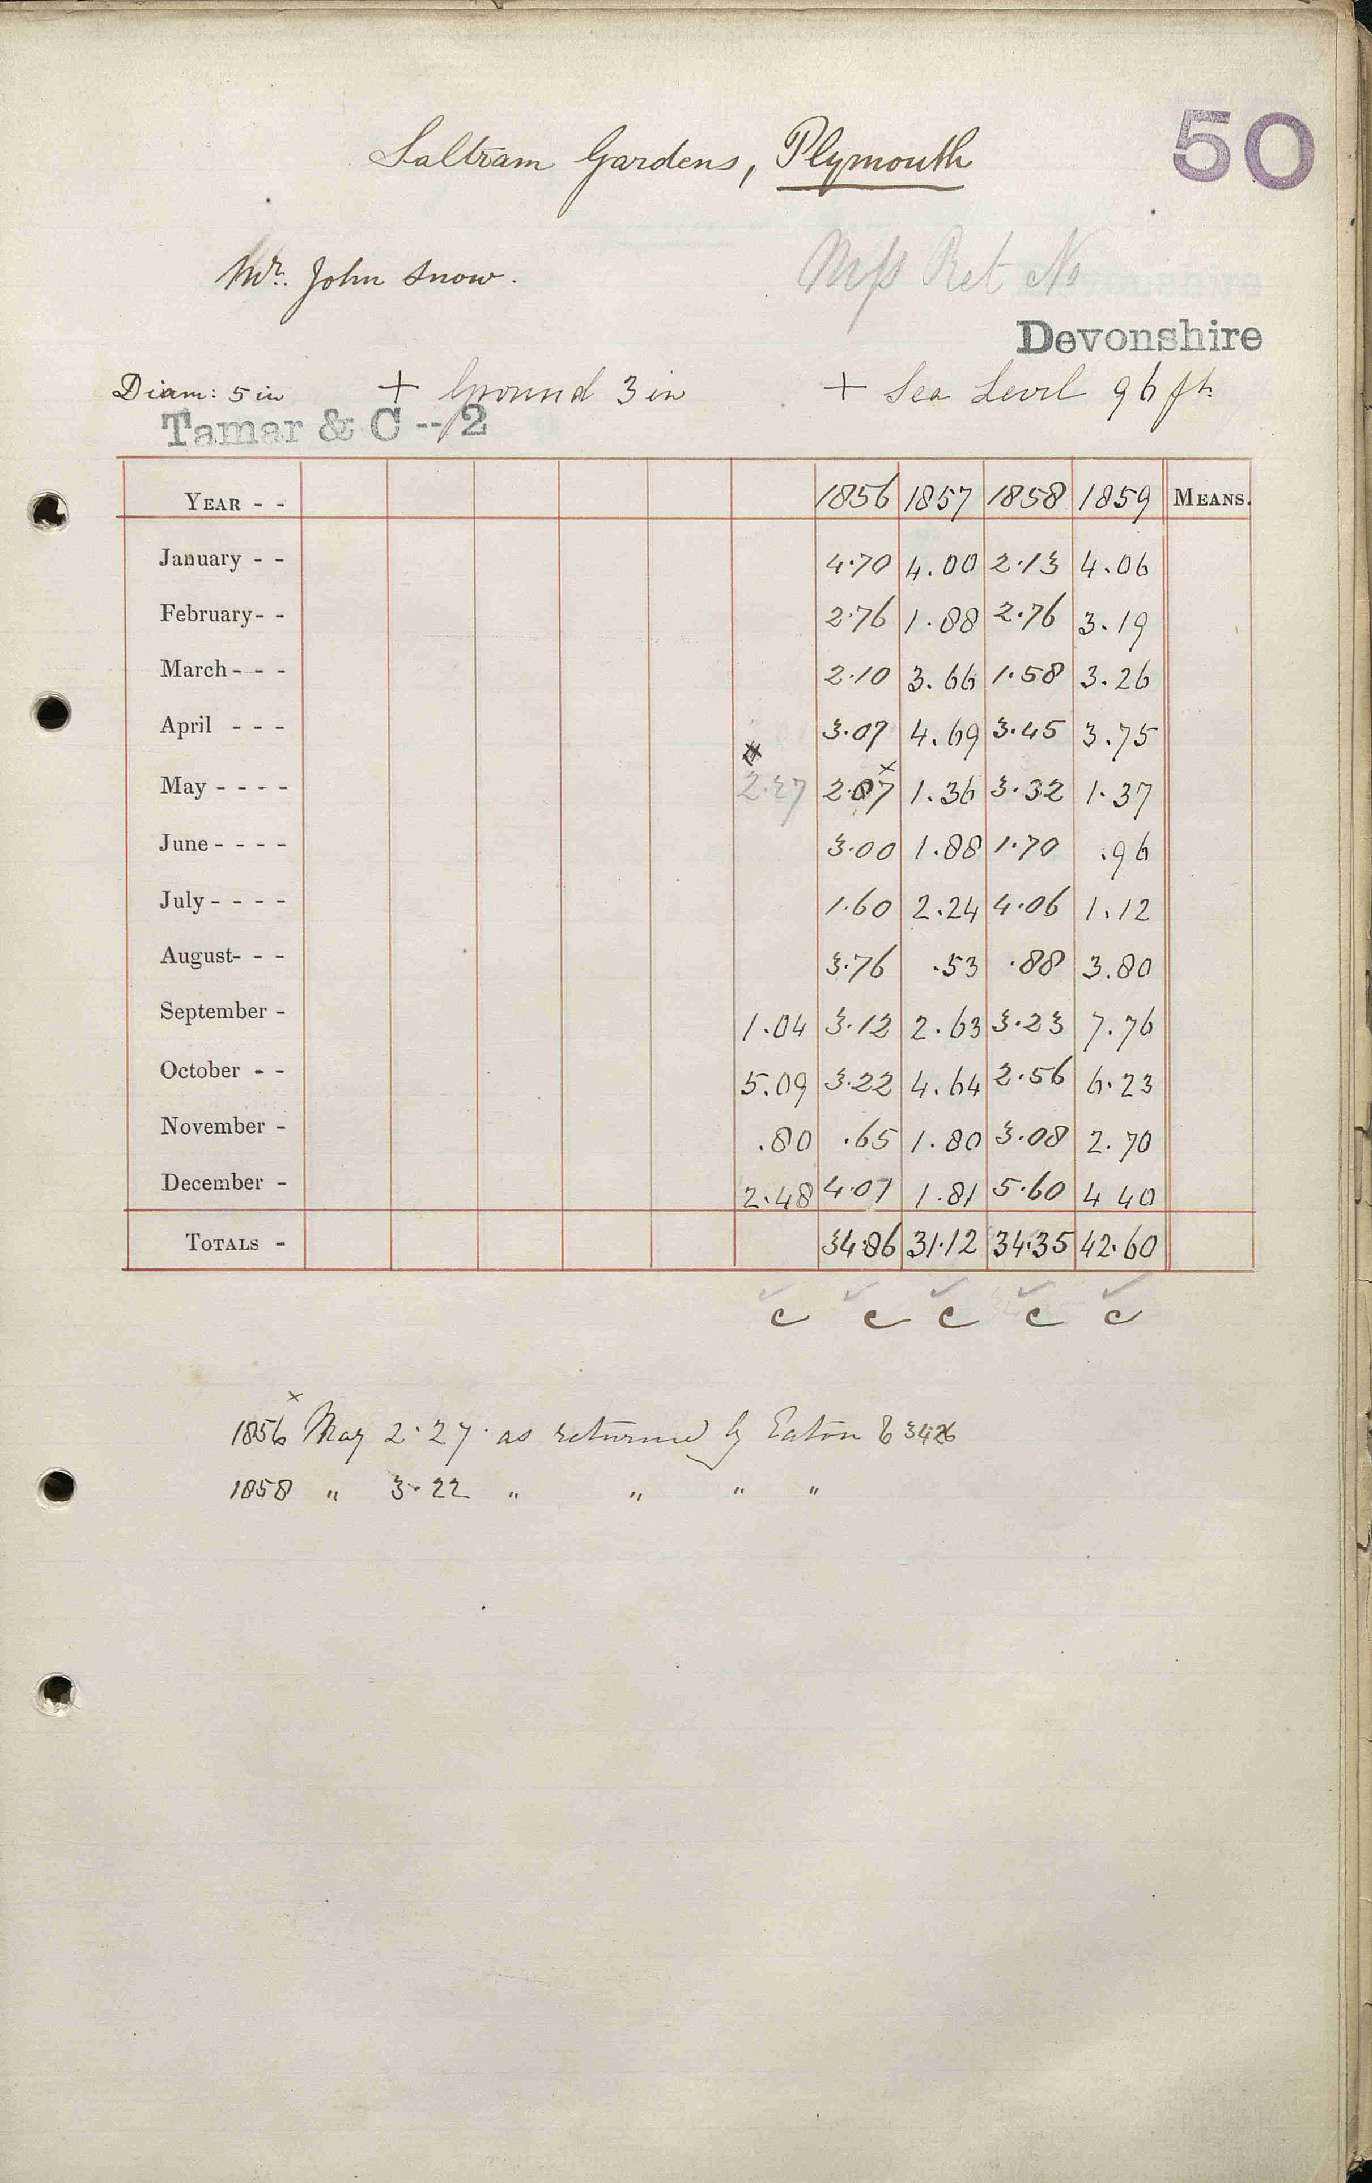 50
Saltram Gardens, Plymouth
Mr. John Snow.
Mss Ret No
Devonshire
Diam: 5 in + Ground 3 in + Sea Level 96 ft.
Tamar & C -- 2
YEAR - - 1856 1857 1858 1859 MEANS.
January - - 4.70 4.00 2.13 4.06
February - - 2.76 1.88 2.76 3.19
March - - - 2.10 3.66 1.58 3.26
April - - - 3.07 4.69 3.45 3.75
May - - - - 2.27 2.87 × 1.36 3.32 1.37
June - - - - 3.00 1.88 1.70 .96
July - - - - 1.60 2.24 4.06 1.12
August - - - 3.76 .53 .88 3.80
September - 1.04 3.12 2.63 3.23 7.76
October - - 5.09 3.22 4.64 2.56 6.23
November - .80 .65 1.80 3.08 2.70
December - 2.48 4.01 1.81 5.60 4 40
TOTALS - 34.86 31.12 34.35 42.60
c c c c c
1856 × May 2.27 as returned by Eaton 6 3426
1858 " 3.22 " " " "